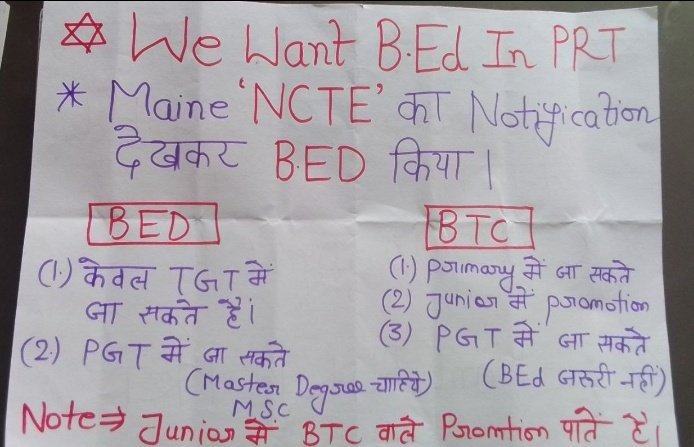 We Want B.Ed In PRT
* Maine 'NCTE' का Notification
देखकर BED किया।
BED
(1.) केवल TGT में
जा सकते हैं।
(2.) PGT में जा सकते
(Master Degree चाहिये)
MSC
BTC
(1.) primary में जा सकते
(2) Junior में promotion
(3) PGT में जा सकते
(BEd जरूरी नहीं)
Note⇒ Junior में BTC वाले Promtion पातें है।